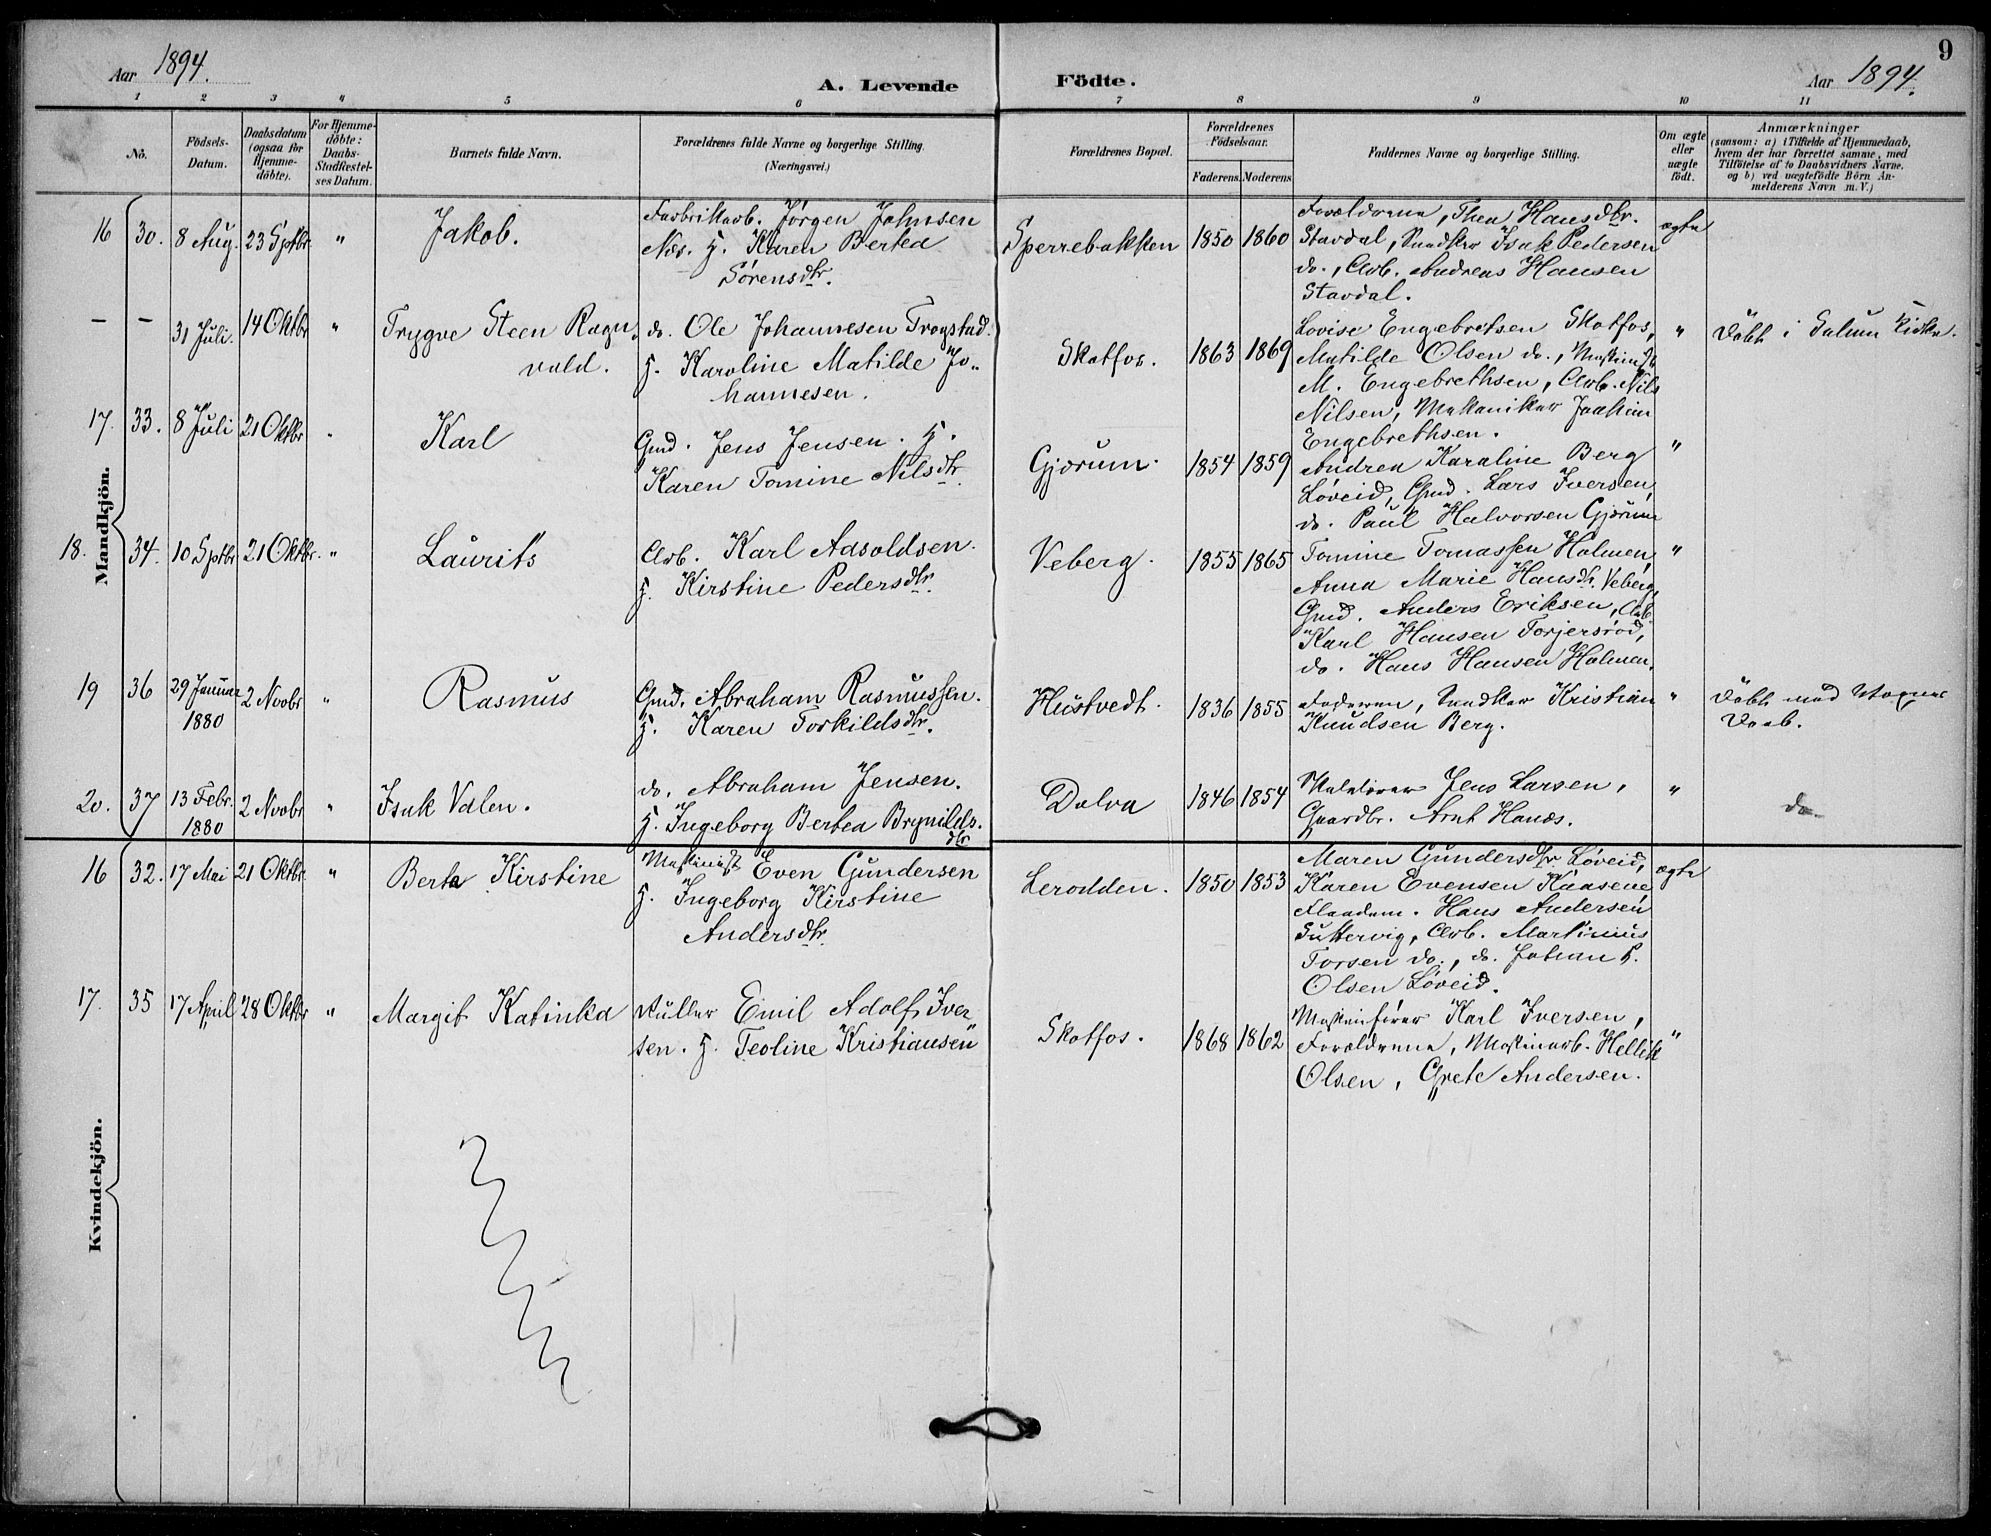 Aar 1894.
A. Levende Födte.
Aar 1894.
9
1 2 3 4 5 6 7 8 9 10 11
No.
Födsels-Datum.
Daabsdatum (ogsaa for Hjemme-döbte).
For Hjemme-döbte: Daabs-Stadfæstel-ses Datum.
Barnets fulde Navn.
Forældrenes fulde Navne og borgerlige Stilling. (Næringsvei.)
Forældrenes Bopæl.
Forældrenes Födselsaar.
Faderens. Moderens.
Faddernes Navne og borgerlige Stilling.
Om ægte eller uægte födt.
Anmærkninger
(saasom: a) i Tilfælde af Hjemmedaab,
hvem der har forrettet samme, med
Tilföielse af to Daabsvidners Navne.
og b) ved uægtefödte Börn An-
melderens Navn m. V.)
Mandkjön.
16 30. 8 Aug. 23 Sptbr. " Jakob.
Fabrikarb. Jørgen Johnsen
Næs. H. Karen Bertea
Sørensdtr.
Sperrebakken 1850 1860
Forældrene, Thea Hansdtr.
Stavdal, Snedker Isak Pedersen
do., Arb. Andreas Hansen
Stavdal.
ægte
— — 31 Juli. 14 Oktbr " Trygve Steen Ragn-
vald.
do. Ole Johannesen Trogstad.
H. Karoline Matilde Jo-
hannesen.
Skotfos. 1863 1869
Lovise Engebretsen Skotfos,
Matilde Olsen do.,
M. Engebrethsen, Arb. Nils
Nilsen, Mekaniker Joakim
Engebrethsen.
" Døbt i Solum Kirke.
17. 33. 8 Juli 21 Oktbr " Karl
Gmd. Jens Jensen. H.
Karen Tomine Nilsdtr.
Gjørum. 1854 1859
Andrea Karaline Berg
Løveid, Gmd. Lars Iversen,
do. Paul Halvorsen Gjørum
"
18. 34. 10 Sptbr 21 Oktbr. " Laurits
Arb. Karl Adsoldsen.
H. Kirstine Pedersdtr.
Veberg. 1855 1865
Tomine Tomassen Holmen,
Anna Marie Hansdtr. Veberg,
Gmd. Anders Eriksen, Arb.
Karl Hansen Torjersrød,
do. Hans Hansen Holmen.
"
19 36 29 Januar 1880 2 Novbr " Rasmus
Gmd. Abraham Rasmussen.
H. Karen Torkildsdtr.
Hustvedt. 1836 1855
Faderen, Snedker Kristian
Knudsen Berg.
" Døbt med Voxnes
Daab.
20. 37 13 Febr. 1880 2 Novbr " Isak Valen.
do. Abraham Jensen.
H. Ingeborg Bertea Brynilds-
dtr.
Dolva 1846 1854
Skolelærer Jens Larsen,
Gaardbr. Arnt Hanæs.
" do.
Kvindekjön.
16 32. 17 Mai 21 Oktbr. " Berta Kirstine
Maskinist Even Gundersen
H. Ingeborg Kirstine
Andersdtr.
Lerodden. 1850 1853
Maren Gundersdtr Løveid,
Karen Evensen Kaasene
Flaadem. Hans Andersen
Guttervig, Arb. Martinius
Torsen do., do. Johan H.
Olsen Løveid.
ægte
17. 35 17 April 28 Oktbr " Margit Katinka
Ruller Emil Adolf Iver
sen. H. Teoline Kristiansen
Skotfos. 1868 1862
Maskinfører Karl Iversen,
Forældrene, Maskinarb. Hellik
Olsen, Grete Andersen.
"